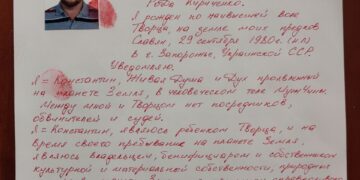 Рода Кириченко.
Я рождён по наивысшей воле
Творца, на земле моих предков
Славян, 29 сентября 1980г. (н.л)
В г. Запорожье, Украинской ССР.
Уведомляю.
Я = Константин, Живая Душа и Дух проявленный
на планете Земля, в человеческом теле Мужчины.
Между мной и Творцом нет посредников,
обвинителей и судей.
Я = Константин, являюсь ребёнком Творца, и на
время своего пребывания на планете Земля,
являюсь владельцем, бенефициаром и собственником
культурной и материальной собственности, природных